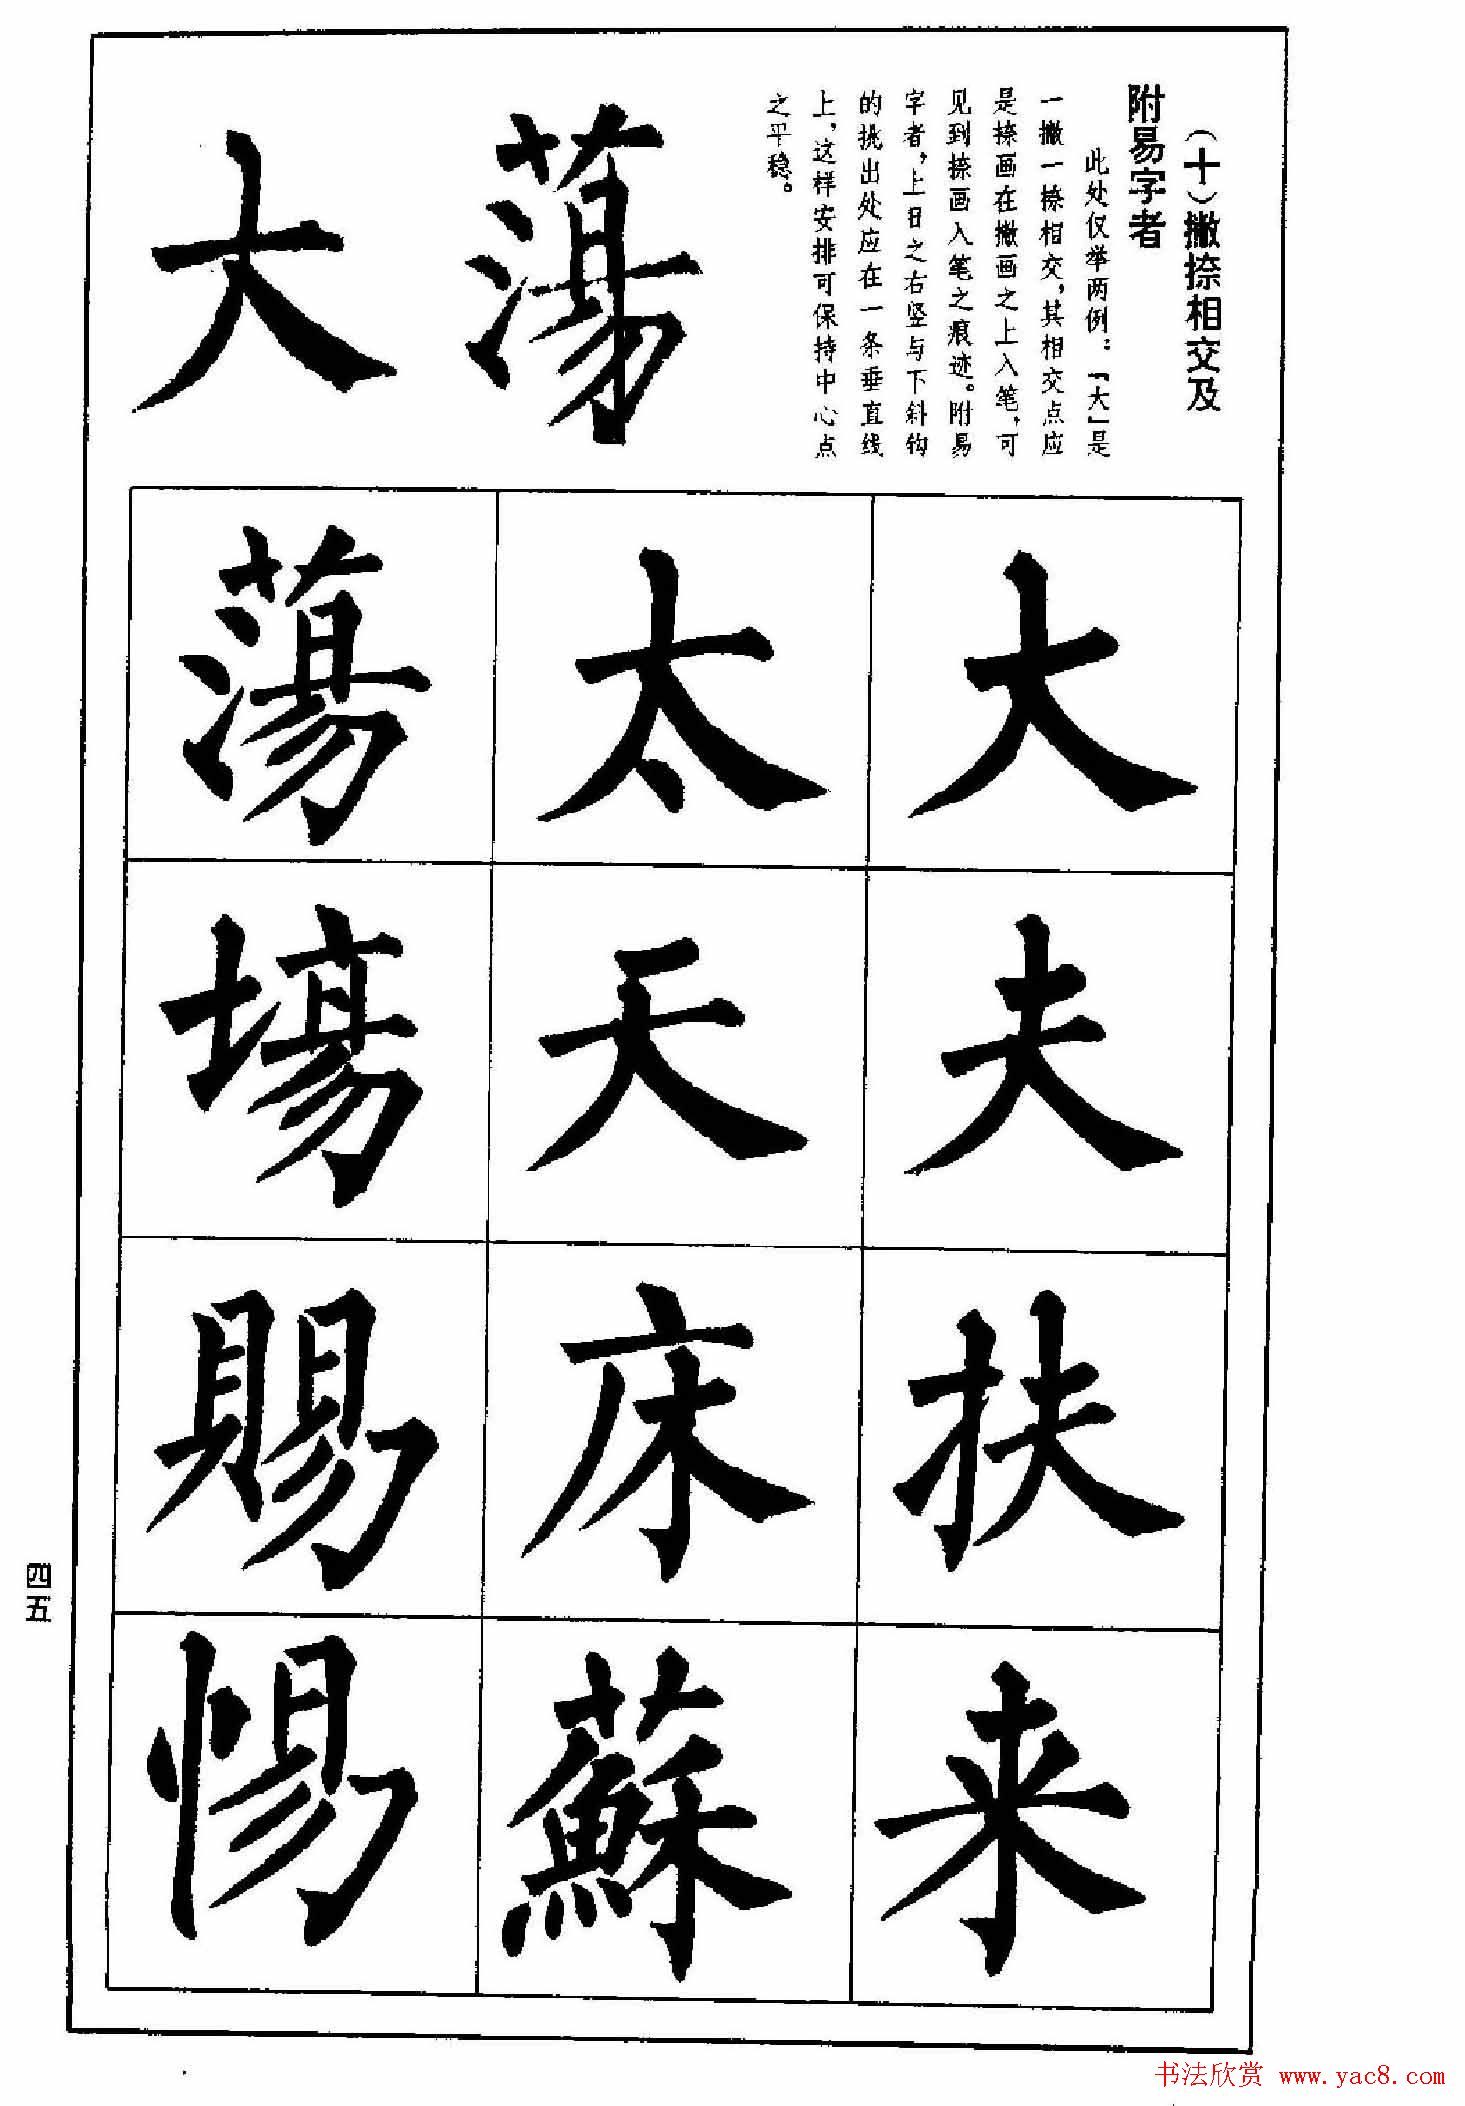 （十）撇捺相交及
附易字者
此处仅举两例：「大」是
一撇一捺相交，其相交点应
是捺画在撇画之上入笔，可
见到捺画入笔之痕迹。附易
字者，上日之右竖与下斜钩
的挑出处应在一条垂直线
上，这样安排可保持中心点
之平稳。
蕩
大
大
夫
扶
来
太
天
床
蘇
蕩
場
賜
惕
四五
书法欣赏 www.yac8.com